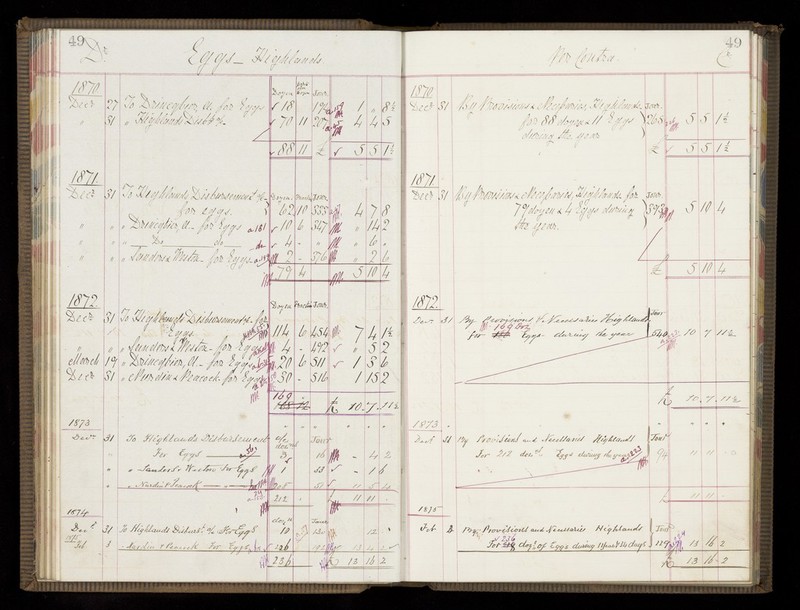 49
Dr Eggs - Highlands
1870
Dozen Odd Eggs Jour.
Decr 27 To Drinegbier, A. for Eggs 18 1 " 8½
" 31 " Highlands Disbt 70 11 207 4 4 5
88 11 £ 5 5 1½
1871
Decr 31 To Highlands Disbursement a/c
for Eggs. 62 10 533 4 7 8
" " " Drinegbier, A - for Eggs 10 6 547 " 14 2
" " " Do do 4 - " " 6 "
" " " Sanders & Weston - for Eggs 2 - 576 " 2 6
79 4 5 10 4
1872
Decr 31 To Highlands Disbursements for
Eggs 114 6 454 7 4 1½
" " " Sanders & Weston - for Eggs 4 - 492 " 5 2
March 19 " Drinegbier, A - for Eggs 20 6 511 1 3 6
Decr 31 " Nurdin & Peacock for Eggs 30 - 516 1 15 2
169
£ 10 - 7 - 11½
1873
Decr 31 To Highlands Disbursement a/c
For Eggs 3 16 - 4 2
" " Sanders & Weston For Eggs 1 33 - 1 6
" " Nurdin & Peacock 208 11 5 4
212 11 11 -
1874
Decr 31 To Highlands Disburst a/c For Eggs 10 12
Feb Nurdin & Peacock For Eggs 226 13 4 2
236 £ 13 16 2
49
Per Contra Cr
1870
Decr 31 By Provisions & Necessaries, Highlands Jour.
for 88 dozen & 11 Eggs 268 5 5 1½
during the year
£ 5 5 1½
1871
Decr 31 By Provisions & Necessaries, Highlands for Jour.
79 dozen & 4 Eggs during 593 5 10 4
the year.
£ 5 10 4
1872
Decr 31 By Provisions & Necessaries Highlands Jour
169 doz
for Eggs during the year 540 10 7 11½
£ 10 . 7 . 11½
1873
Decr 31 By Provisions and Necessaries Highlands Jour
For 212 dozn Eggs during the year 94 11 11 -
£ 11 11 -
1875
Feb By Provisions and Necessaries Highlands Jour
236
For dozs of Eggs during 1 year & 40 days 129 13 16 2
£ 13 16 - 2